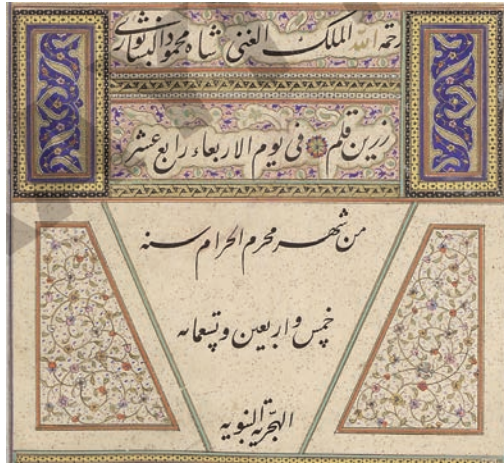 رحمة الله الملك الغنی شاه محمود النیشابوری
زرین قلم فی یوم الاربعاء رابع عشر
من شهر محرم الحرام سنه
خمس و اربعین و تسعمائه
الهجریة النبویه